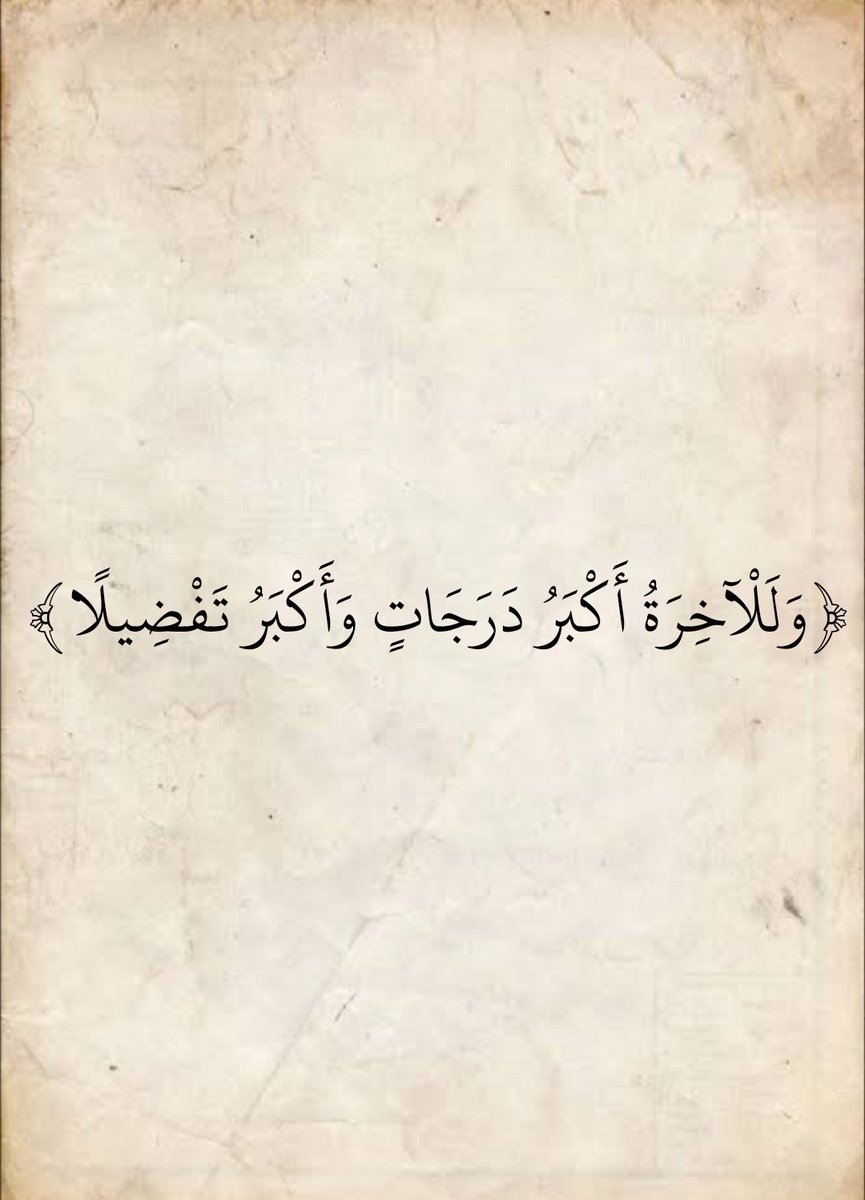 ﴿وَلَلْآخِرَةُ أَكْبَرُ دَرَجَاتٍ وَأَكْبَرُ تَفْضِيلًا﴾